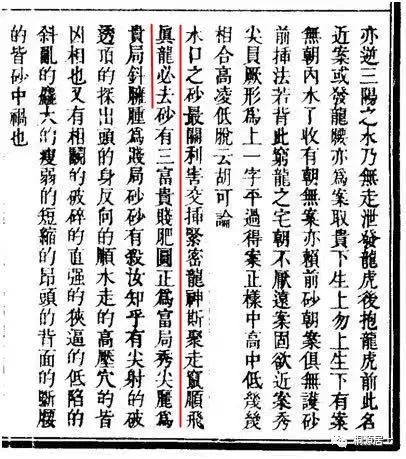 亦逆三陽之水乃無走泄發龍虎後抱龍虎前此名
近案或發龍腰亦為案取貴下生上勿上生下有案
無朝內水了收有朝無案亦賴前砂朝案俱無護砂
前揷法若背此窮龍之宅朝不厭遠案固欲近案秀
尖員厥形為上一字平過得案正樣中高中低幾幾
相合高凌低脫云胡可論
水口之砂最關利害交揷緊密龍神斯聚走竄順飛
眞龍必去砂有三富貴賤肥圓正為富局秀尖麗為
貴局斜臃腫為賤局砂砂有殺汝知乎有尖射的破
透頂的探出頭的身反向的順水走的高壓穴的皆
凶相也又有相鬭的破碎的直强的狹逼的低陷的
斜亂的麤大的瘦弱的短縮的昂頭的背面的斷腰
的皆砂中禍也